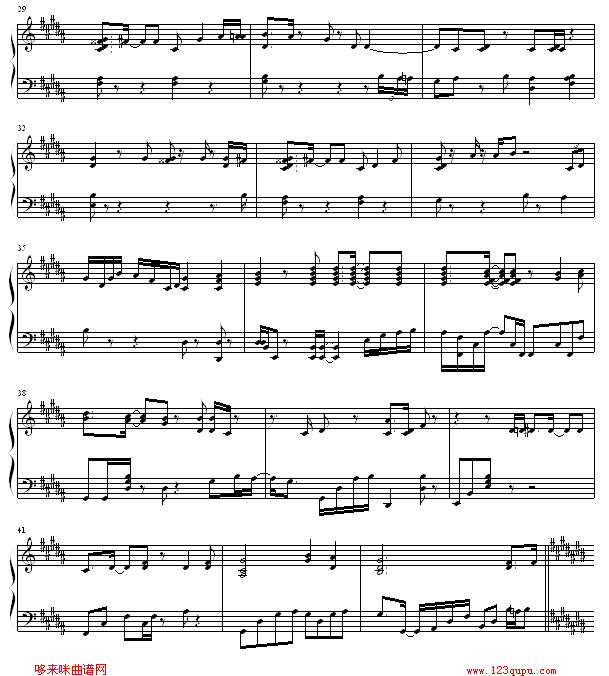 29
3
32
35
38
41
哆来咪曲谱网
www.123qupu.com